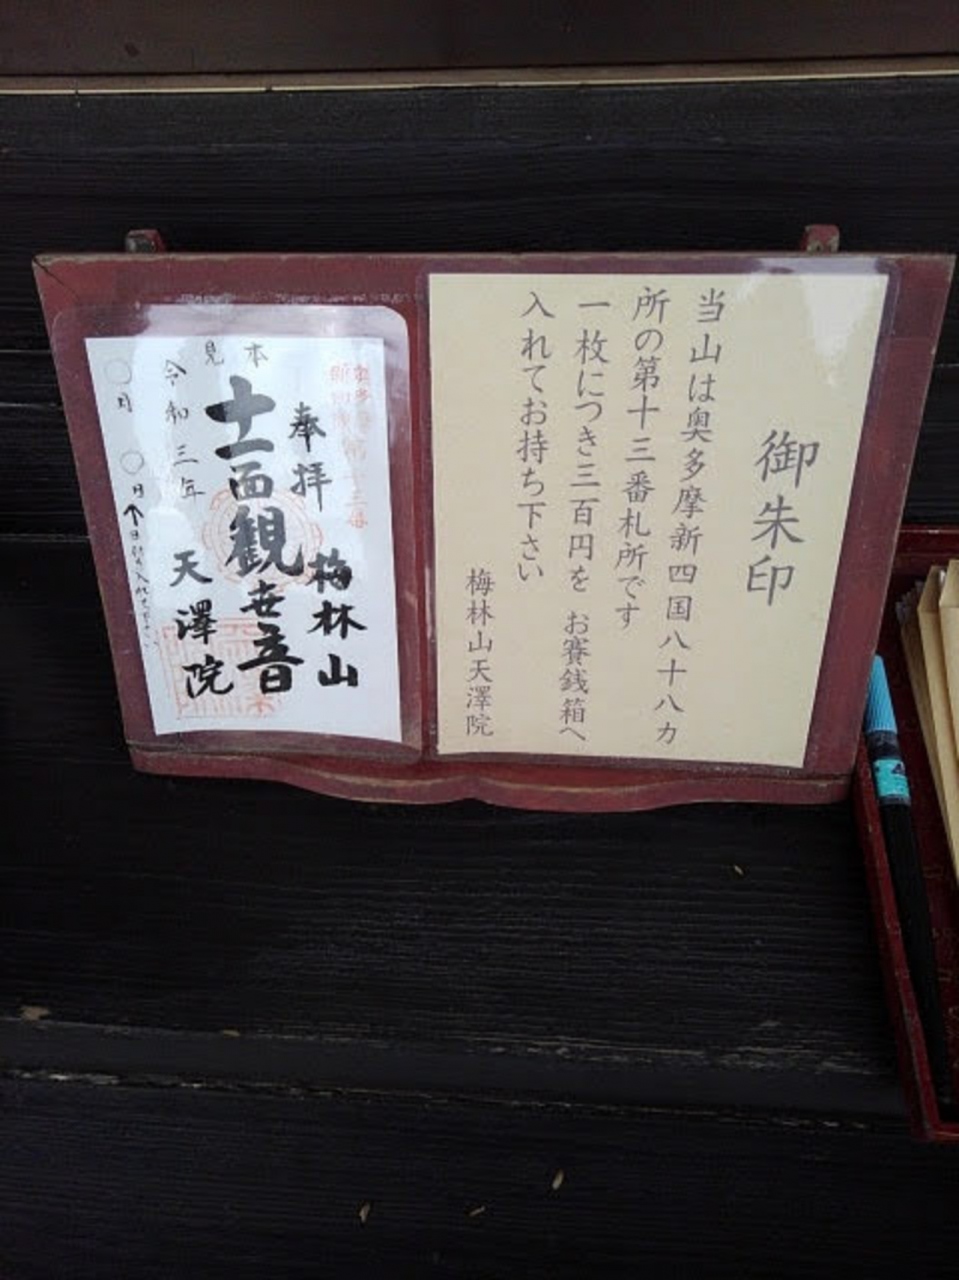 御朱印
当山は奥多摩新四国八十八カ
所の第十三番札所です
一枚につき三百円を お賽銭箱へ
入れてお持ち下さい
梅林山天澤院
見本
奉拝
梅林山
十一面観世音
天澤院
令和三年
〇月
〇日